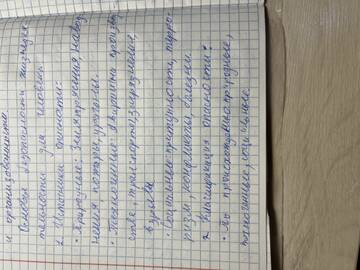 и организованности
Основы безопасности жизнедея-
тельности для человека
1. Источники опасности:
• Природные: землетрясения, навод-
нения, пожары, ураганы.
• Техногенные: аварии на произв.
стве, транспорте,
взрывы
• Социальные: преступность, терро-
ризм, конфликты, болезни.
2. Классификация опасностей:
• По происхождению: природные,
техногенные, социальные.